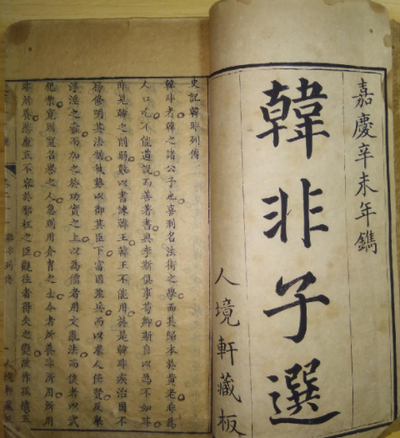 嘉慶辛未年鐫
韓非子選
人境軒藏板
史記韓非列傳
韓非者韓之諸公子也喜刑名法術之學而其歸本於黃老非為
人口吃不能道說而善著書與李斯俱事荀卿斯自以為不如非
非見韓之削弱數以書諫韓王韓王不能用於是韓非疾治國不
務修明其法制執勢以御其臣下富國彊兵而以求人任賢反舉
浮淫之蠹而加之於功實之上以為儒者用文亂法而俠者以武
犯禁寬則寵名譽之人急則用介冑之士今者所養非所用所用
非所養悲廉直不容於邪枉之臣觀往者得失之變故作孤憤五
韓非列傳